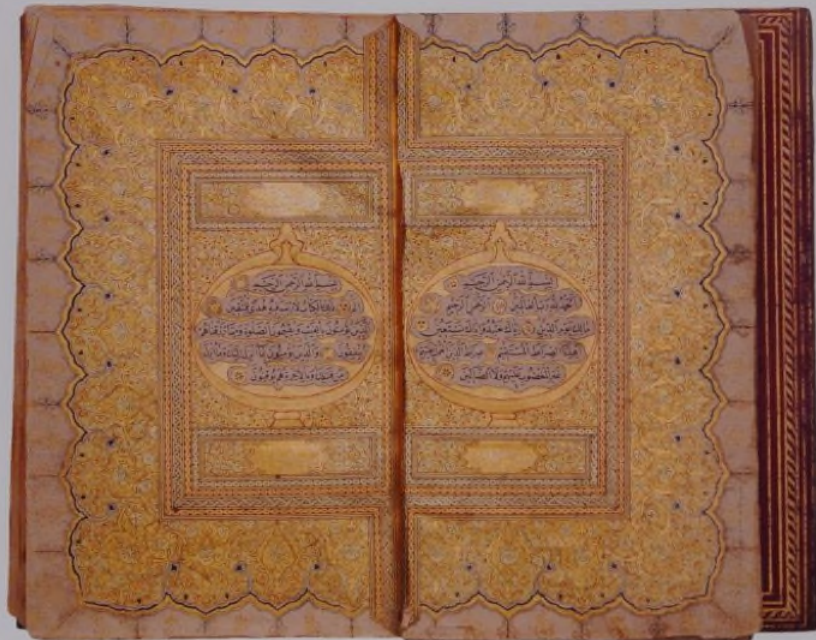 بسم الله الرحمن الرحيم
الحمد لله رب العالمين الرحمن الرحيم
مالك يوم الدين إياك نعبد وإياك نستعين
اهدنا الصراط المستقيم صراط الذين أنعمت عليهم
غير المغضوب عليهم ولا الضالين
بسم الله الرحمن الرحيم
الم ذلك الكتاب لا ريب فيه هدى للمتقين
الذين يؤمنون بالغيب ويقيمون الصلوة ومما رزقناهم
ينفقون والذين يؤمنون بما أنزل إليك وما أنزل
من قبلك وبالآخرة هم يوقنون